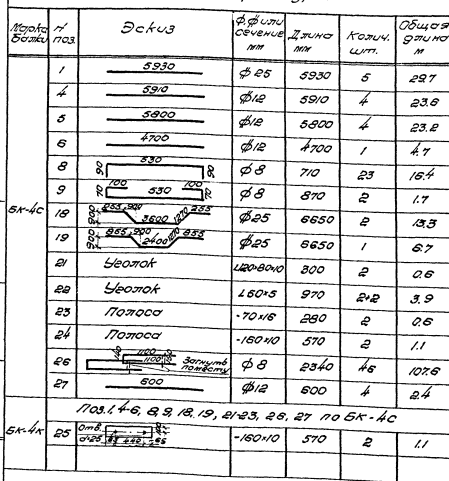 Марка балки | № поз. | Эскиз | Ф, Ф или сечение мм | Длина мм | Колич. шт. | Общая длина м
БК-4С
1 | 5930 | Ф 25 | 5930 | 5 | 29.7
4 | 5910 | Ф12 | 5910 | 4 | 23.6
5 | 5800 | Ф12 | 5800 | 4 | 23.2
6 | 4700 | Ф12 | 4700 | 1 | 4.7
8 | 90 530 90 | Ф 8 | 710 | 23 | 16.4
9 | 70 100 530 100 70 | Ф 8 | 870 | 2 | 1.7
18 | 900 255 900 3600 1270 255 | Ф25 | 6650 | 2 | 13.3
19 | 900 855 900 2400 1270 855 | Ф25 | 6650 | 1 | 6.7
21 | Уголок | L120×80×10 | 300 | 2 | 0.6
22 | Уголок | L60×5 | 970 | 2+2 | 3.9
23 | Полоса | -70×16 | 280 | 2 | 0.6
24 | Полоса | -160×10 | 570 | 2 | 1.1
26 | 1100 1100 Загнуть по месту | Ф 8 | 2340 | 46 | 107.6
27 | 600 | Ф12 | 600 | 4 | 2.4
Поз.1, 4-6, 8, 9, 18, 19, 21-23, 26, 27 по БК-4С
БК-4К | 25 | Отв. d=25 65 440 65 | -160×10 | 570 | 2 | 1.1